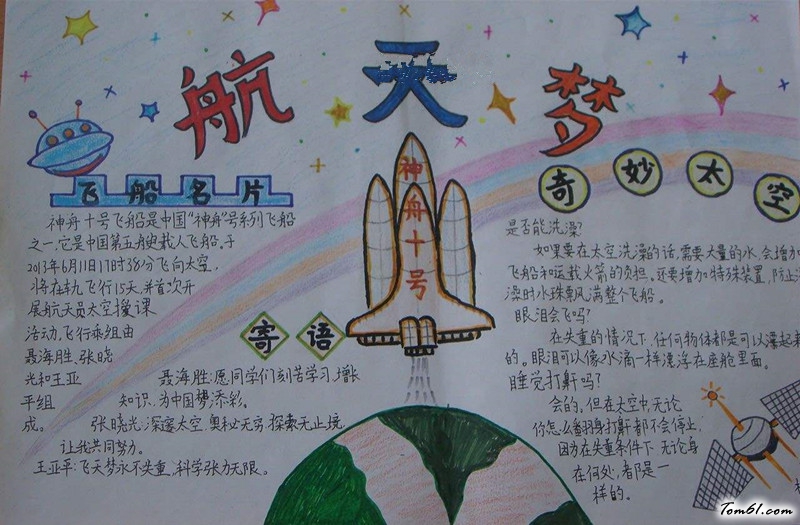 航天梦
飞船名片
神舟十号飞船是中国"神舟"号系列飞船
之一,它是中国第五艘载人飞船,于
2013年6月11日17时38分飞向太空,
将在轨飞行15天,并首次开
展航天员太空授课
活动,飞行乘组由
聂海胜、张晓
光和王亚
平组
成。
神舟十号
寄语
聂海胜:愿同学们刻苦学习,增长
知识,为中国梦添彩。
张晓光:深邃太空,奥秘无穷,探索无止境,
让我共同努力。
王亚平:飞天梦永不失重,科学张力无限。
奇妙太空
是否能洗澡?
如果要在太空洗澡的话,需要大量的水,会增加
飞船和运载火箭的负担。还要增加特殊装置,防止洗
澡时水珠飘满整个飞船。
眼泪会飞吗?
在失重的情况下,任何物体都是可以漂起来
的。眼泪可以像水滴一样漂浮在座舱里面。
睡觉打鼾吗?
会的,但在太空中,无论
你怎么翻身打鼾都不会停止,
因为在失重条件下,无论身
在何处,都是一
样的。
Tom61.com